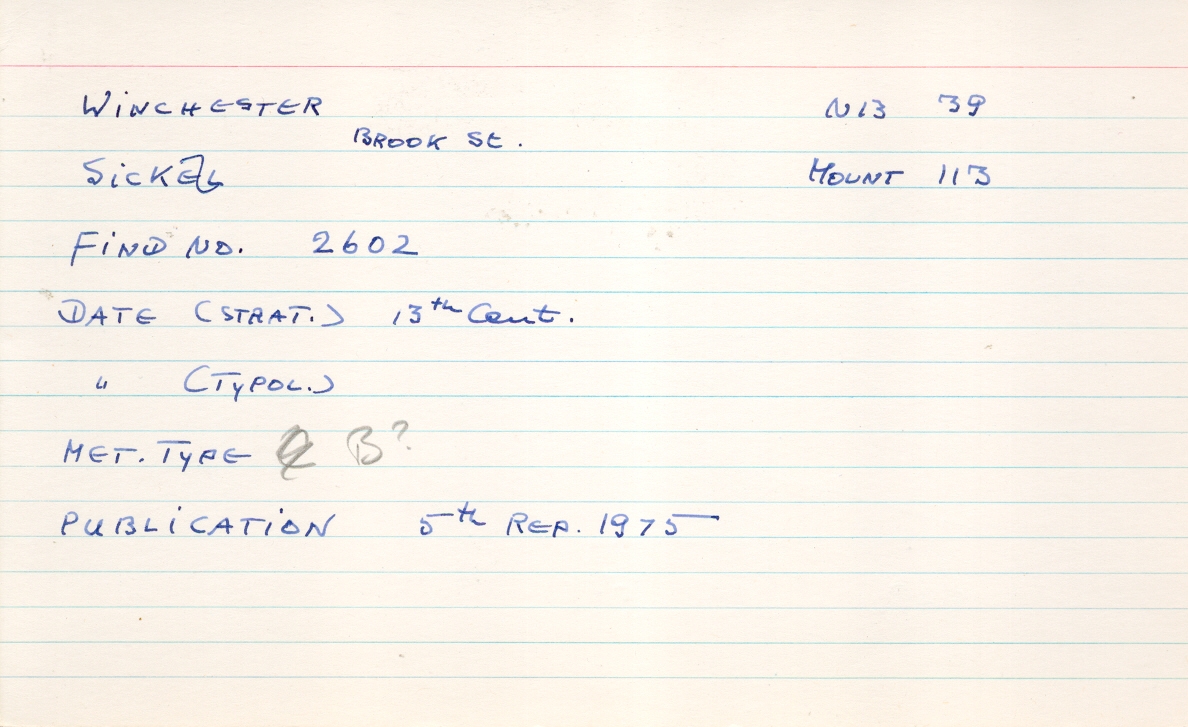 WINCHESTER N13 39
BROOK ST.
SICKEL MOUNT 113
FIND NO. 2602
DATE (STRAT.) 13th Cent.
" (TYPOL.)
MET. TYPE B?
PUBLICATION 5th REP. 1975